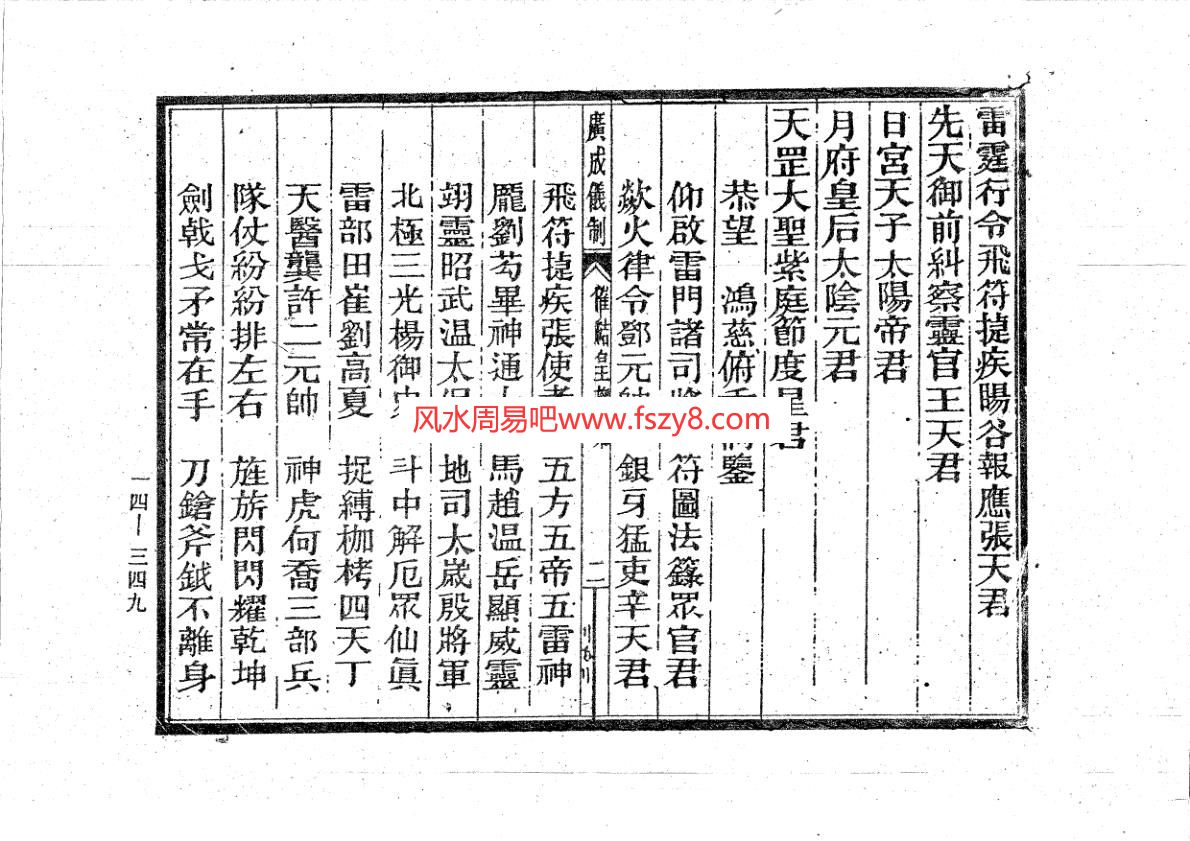 雷霆行令飛符捷疾陽谷報應張天君
先天御前糾察靈官王天君
日宮天子太陽帝君
月府皇后太陰元君
天罡大聖紫庭節度星君
恭望　鴻慈俯　鑒
仰啟雷門諸司　符圖法籙眾官君
歘火律令鄧元帥　銀牙猛吏辛天君
廣成儀制　催結皇　二
飛符捷疾張使者　五方五帝五雷神
龐劉芶畢神通　馬趙溫岳顯威靈
翊靈昭武温太保　地司太歲殷將軍
北極三光楊御史　斗中解厄眾仙眞
雷部田崔劉高夏　捉縛枷栲四天丁
天醫龔許二元帥　神虎何喬三部兵
隊仗紛紛排左右　旌旂閃閃耀乾坤
劍戟戈矛常在手　刀鎗斧鉞不離身
一四－三四九
风水周易吧www.fszy8.com